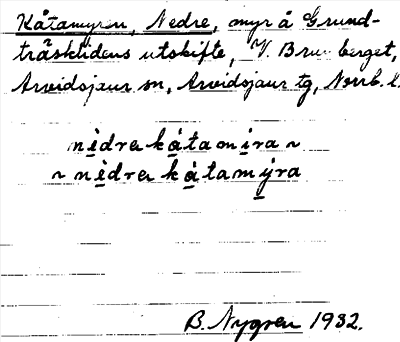 Kåtamyren, Nedre, myr å Grund-
träsklidens utskifte, V. Brunberget,
Arvidsjaur sn, Arvidsjaur tg, Norrb. l.
nìdra kå̀tamìra ~
~ nìdra kå̀tamỳra
B. Nygren 1932.